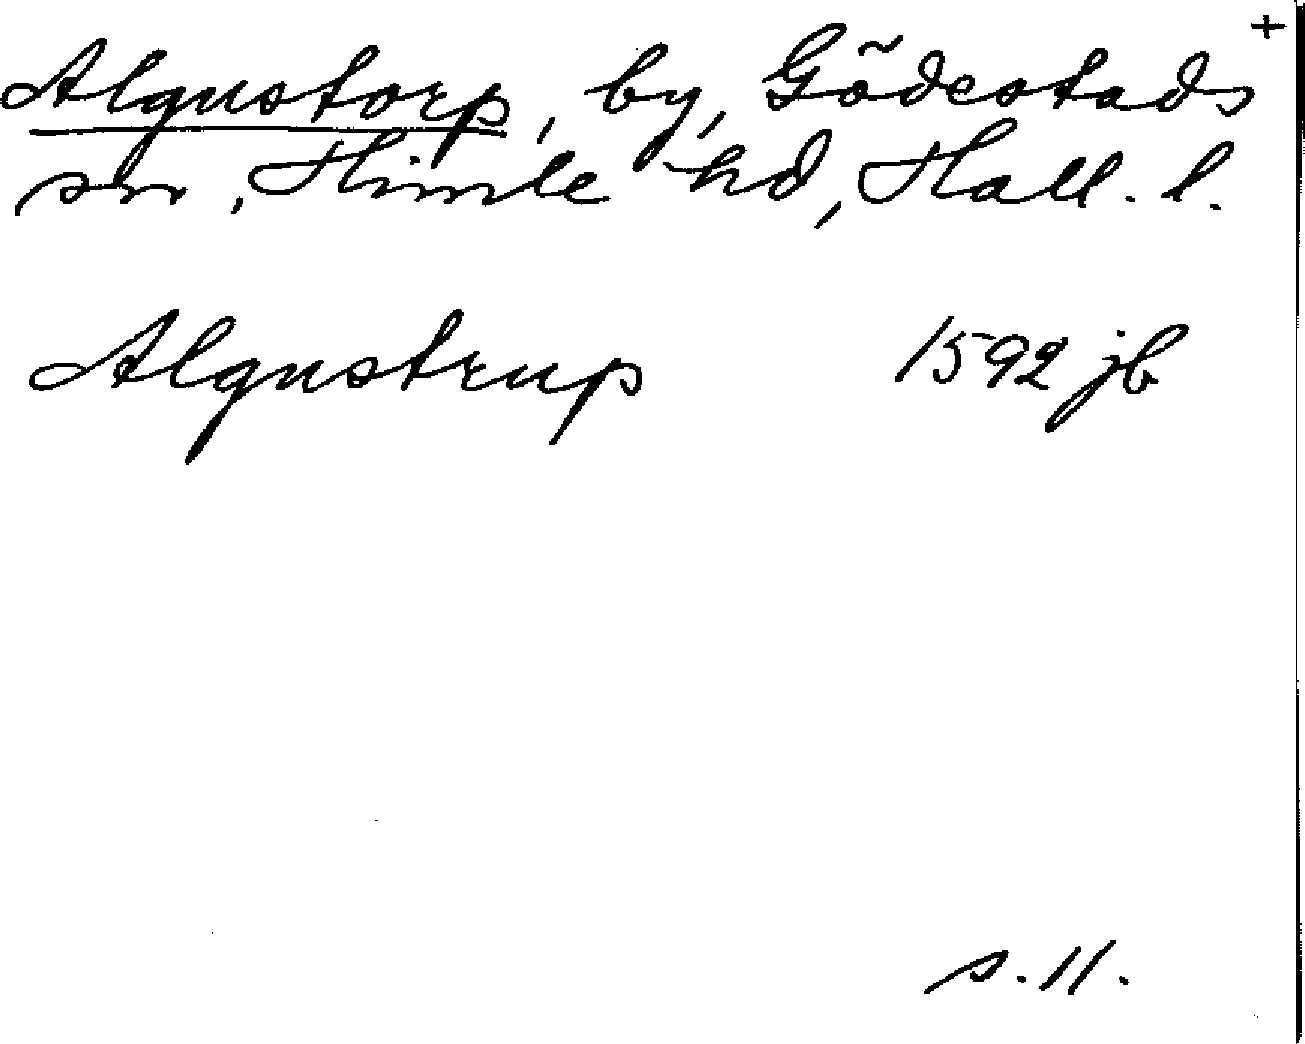 +
Algustorp, by, Gödestads
sn, Himle hd, Hall. l.
Algustrup 1592 jb
s. 11.